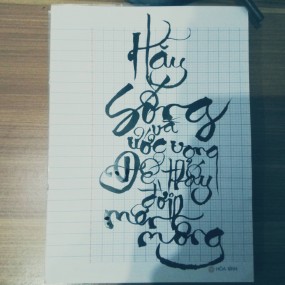 Hãy
Sống
và
ước vọng
Để thấy
đời
mênh
mông
© HÒA BÌNH